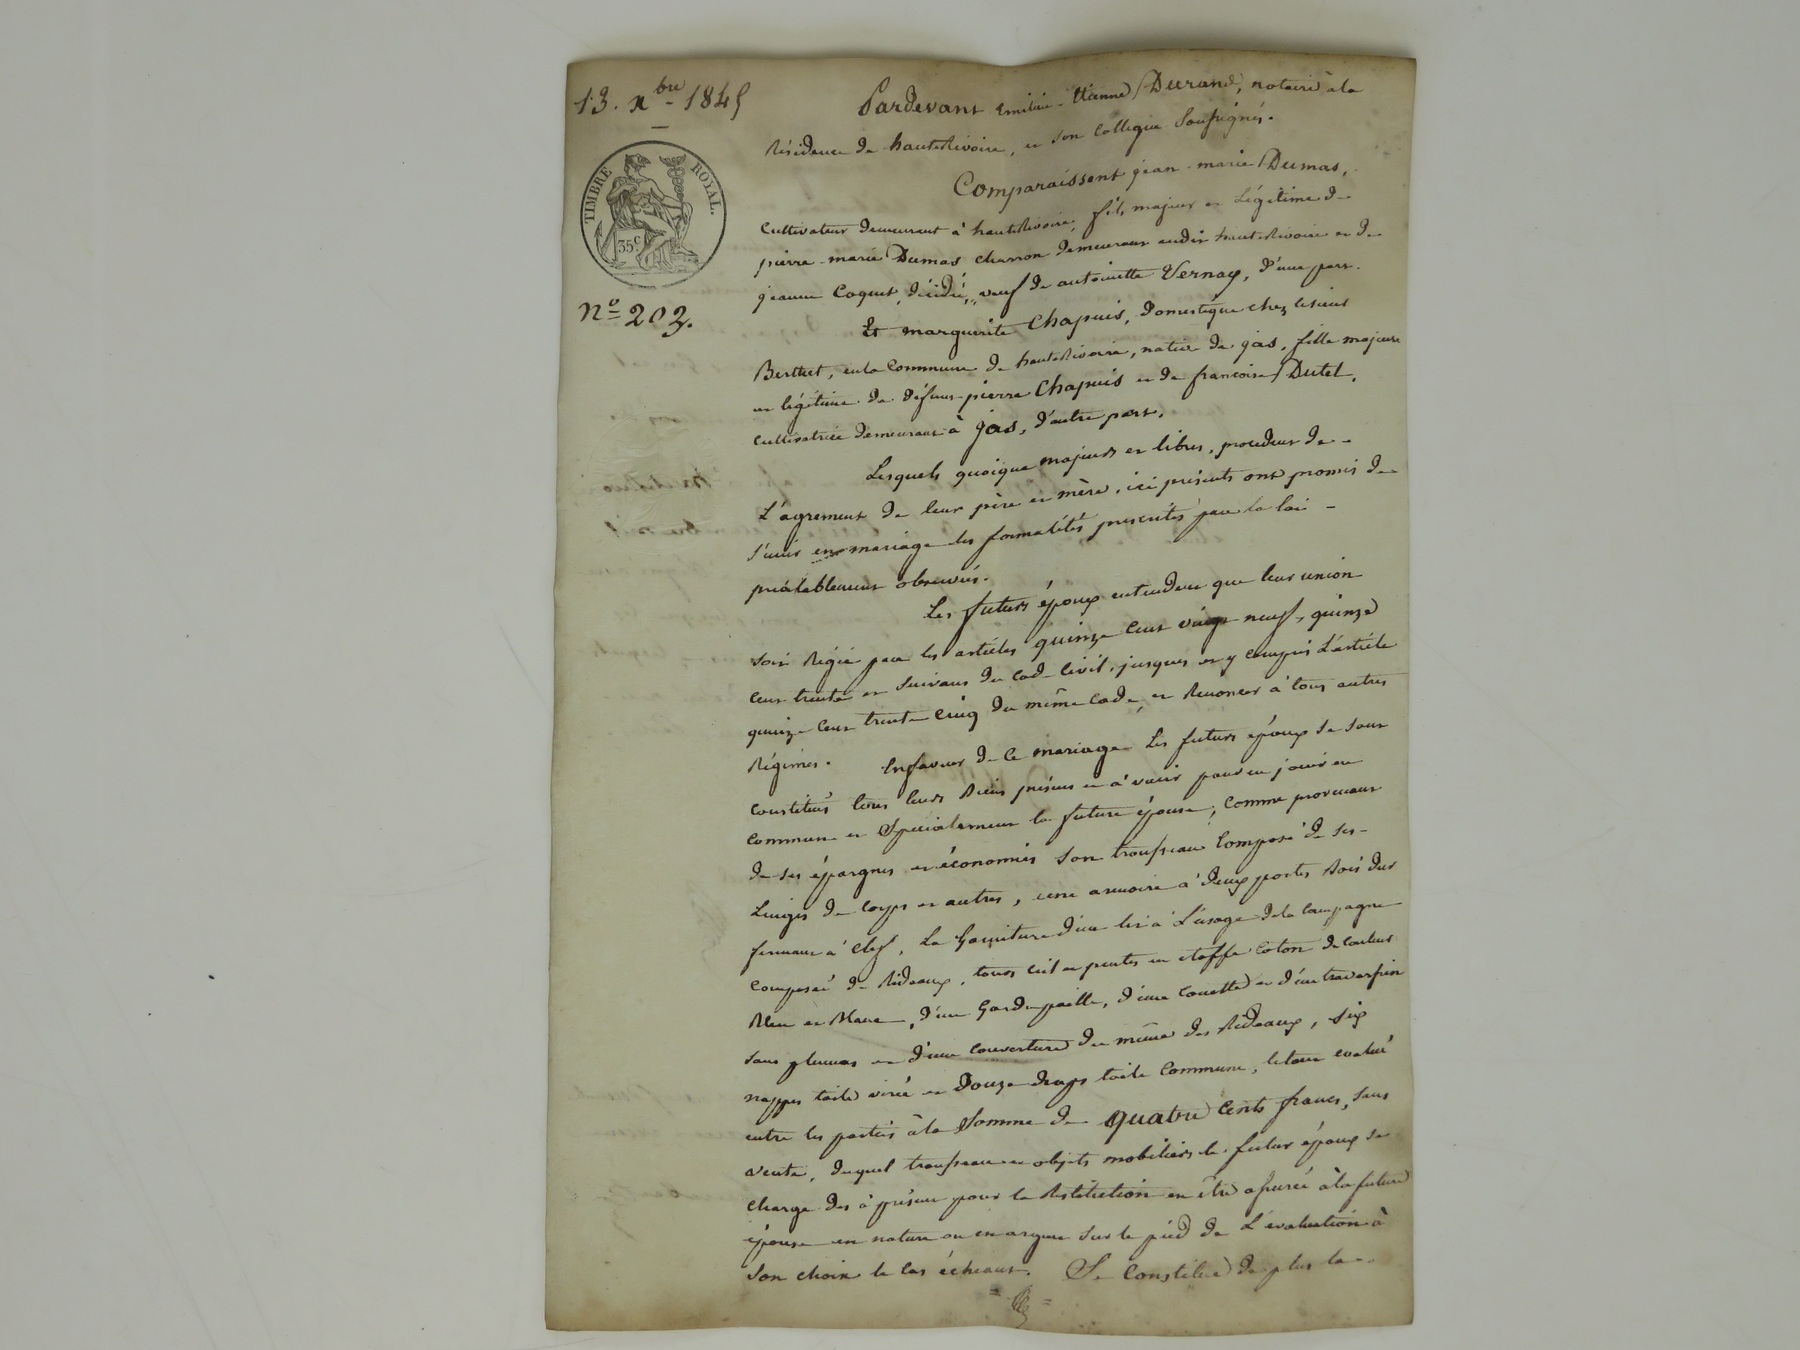 13. xbre 1845
TIMBRE ROYAL.
35c.
No 203.
Pardevant Emilien-Etienne Durand, notaire à la
Résidence de hauteRivoire, et son Collegue Soussignés.
Comparaissent jean-marie Dumas,
Cultivateur demeurant à hauteRivoire, fils majeur et Légitime de
pierre-marie Dumas charron demeurant audit hauteRivoire et de
jeanne Coquet, décédé, veuf de antoinette Vernay, d'une part.
Et marguerite Chapuis, Domestique chez le sieur
Berthet, en la Commune de hauteRivoire, native de jas, fille majeure
et légitime de Défunt pierre Chapuis et de francoise Dutel,
Cultivatrice demeurant à jas, d'autre part.
Lesquels quoique majeurs et libres, procédant de
L'agrement de leur père et mère, ici présents ont promis de
s'unir en mariage les formalités prescrites par la loi
préalablement observées.
Les futurs époux entendent que leur union
soit Régie par les articles quinze cent vingt neuf, quinze
cent trente et suivans du Code Civil, jusques et y compris L'article
quinze cent trente cinq du même Code, et Renoncer à tous autres
Régimes. En faveur de Ce mariage Les futurs époux se sont
Constitués tous leurs Biens présens et à venir pour en jouir en
Commun et Spécialement la future épouse, Comme provenant
de ses épargnes et économies Son trousseau Composé de ses
Linges de Corps et autres, une armoire à Deux portes Bois dur
fermant à Clef, La Garniture d'un lit à L'usage de la Campagne
Composée de Rideaux, tours ciel et pentes en étoffe Coton de Couleur
Bleu et Blanc, d'un Gardepaille, d'une Couette et d'un traversin
sans plumes et d'une couverture du même des Rideaux, six
nappes toile et Douze draps toile Commune, le tout évalué
entre les parties à la Somme de quatre Cents francs, Sans
vente, duquel trousseau et objets mobiliers le futur époux se
Charge dès à présent pour la Restitution en être assurée à la future
épouse en nature ou en argent sur le pied de L'évaluation à
Son choix le Cas échéant. Se Constitue de plus la